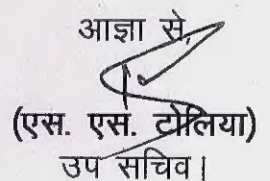 आज्ञा से,
(एस. एस. टोलिया)
उप सचिव।